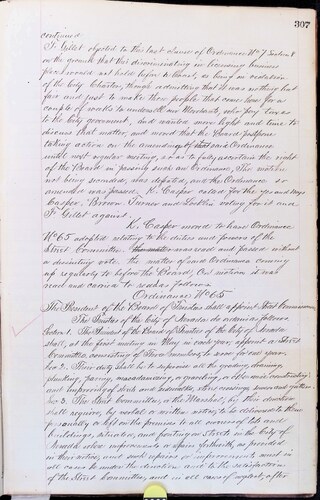 307
continued
F. Gillet objected to the last clause of Ordinance No 7 Section 8
on the ground that this discriminating in licensing business
places would not hold before a Court, as being in violation
of the City Charter, though admitting that it was nothing but
fair and just to make those people that come here for a
couple of weeks to undersell our Merchants, who pay taxes
to the City government, and wanted more light and time to
discuss that matter, and moved that the Board postpone
taking action on the amendment of said Ordinance
until next regular meeting, so as to fully ascertain the right
of the Board in passing such an Ordinance. The motion
not being seconded, was rejected, and the Ordinance so
amended was passed. K. Casper called for the yes and nays
Casper, Brown Turner and voting for it and
F. Gillet against.
K. Casper moved to have Ordinance
No 65 adopted relating to the duties and powers of the
Street Committee. was read and passed without
a dissenting vote, the matter of said Ordinance coming
up regularly to before the Board, Our motion it was
read and carried to read as follows
Ordinance No 65
The President of the Board of Trustees shall appoint Street Commissioner
The Trustees of the City of do ordain as follows
Section 1. The President of the Board of Trustees of the City of
shall, at the first meeting in May in each year, appoint a Street
Committee, consisting of Three members, to serve for one year.
Sec 2. Their duty shall be to supervise all the grading, draining,
planking, paving, macadamizing, repairing, constructing
and improving of streets and sidewalks, sewers and gutters.
Sec 3. The Street Committee, or the Marshal, by their direction
shall require, by verbal or written notice, to be delivered to them
personally or left on the premises to all owners of lots and
buildings, situated and fronting on Streets in the City of
where improvements or repairs forthwith, as provided
in their notice, and such repairs or improvements must in
all cases be under the direction and to the satisfaction
of the Street Committee, and in all cases of neglect, after